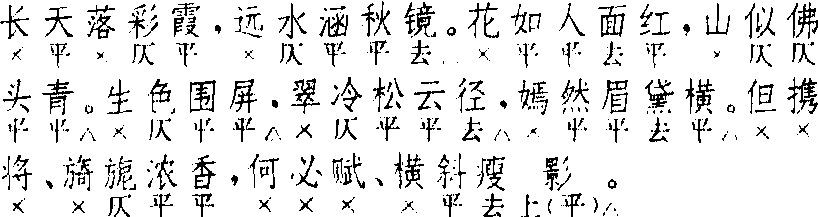 长天落彩霞，远水涵秋镜。花如人面红，山似佛
×平×仄平，×仄平平去△。×平平去平，×仄仄
头青。生色围屏，翠冷松云径，嫣然眉黛横。但携
平平△×仄平平△×仄平平去△×平平去平△××
将、旖旎浓香，何必赋、横斜瘦 影。
××仄平平×××××平去上（平）△